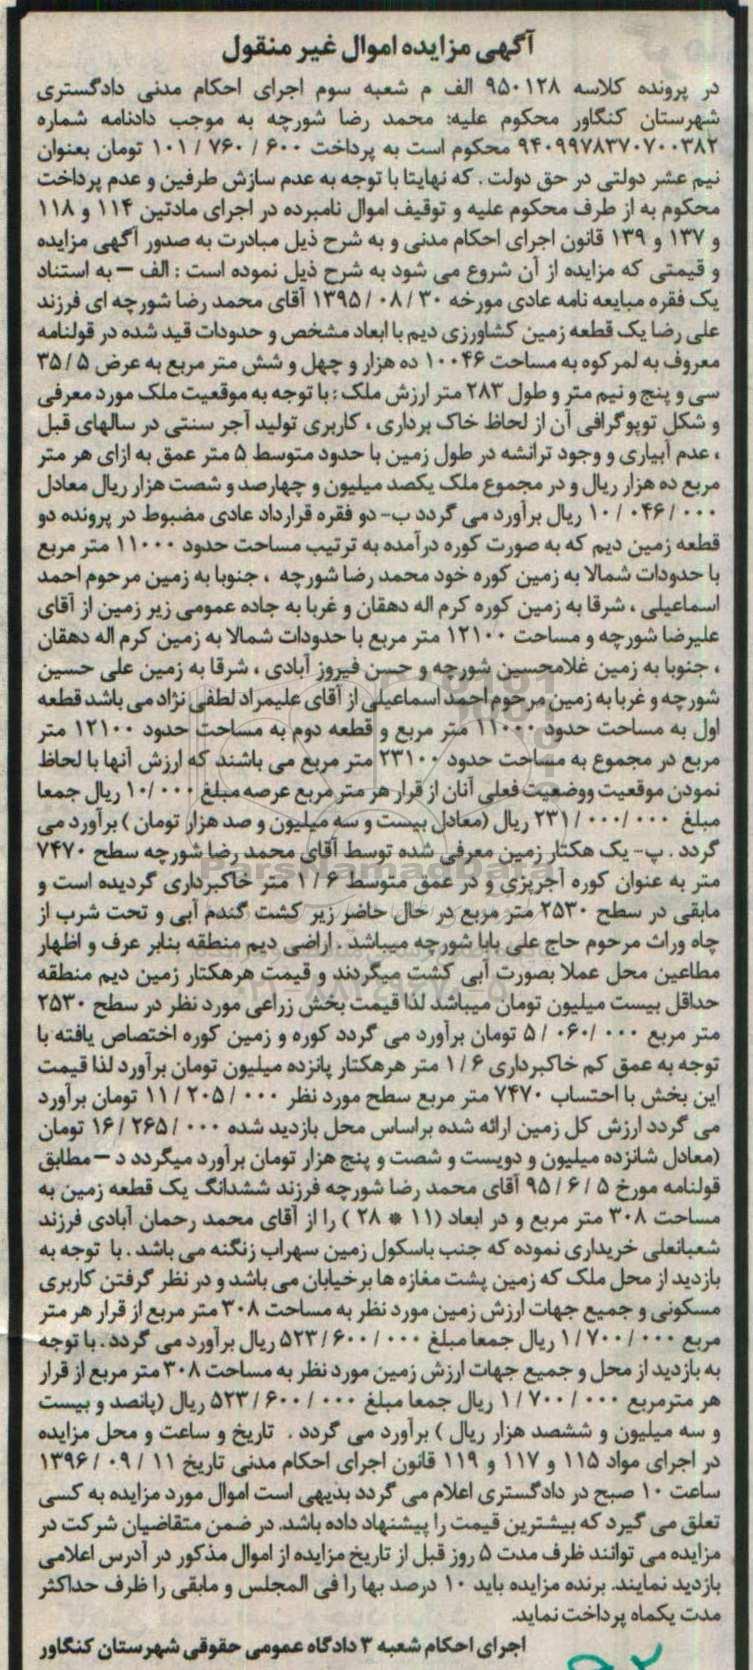 آگهی مزایده اموال غیر منقول
در پرونده کلاسه ۹۵۰۱۲۸ الف م شعبه سوم اجرای احکام مدنی دادگستری
شهرستان کنگاور محکوم علیه: محمد رضا شورچه به موجب دادنامه شماره
۹۴۰۹۹۷۸۳۷۰۷۰۰۳۸۲ محکوم است به پرداخت ۶۰۰ / ۷۶۰ / ۱۰۱ تومان بعنوان
نیم عشر دولتی در حق دولت . که نهایتا با توجه به عدم سازش طرفین و عدم پرداخت
محکوم به از طرف محکوم علیه و توقیف اموال نامبرده در اجرای مادتین ۱۱۴ و ۱۱۸
و ۱۳۷ و ۱۳۹ قانون اجرای احکام مدنی و به شرح ذیل مبادرت به صدور آگهی مزایده
و قیمتی که مزایده از آن شروع می شود به شرح ذیل نموده است : الف – به استناد
یک فقره مبایعه نامه عادی مورخه ۳۰ / ۰۸ / ۱۳۹۵ آقای محمد رضا شورچه ای فرزند
علی رضا یک قطعه زمین کشاورزی دیم با ابعاد مشخص و حدودات قید شده در قولنامه
معروف به لمرکوه به مساحت ۱۰۰۴۶ ده هزار و چهل و شش متر مربع به عرض ۳۵/۵
سی و پنج و نیم متر و طول ۲۸۳ متر ارزش ملک : با توجه به موقعیت ملک مورد معرفی
و شکل توپوگرافی آن از لحاظ خاک برداری ، کاربری تولید آجر سنتی در سالهای قبل
، عدم آبیاری و وجود ترانشه در طول زمین با حدود متوسط ۵ متر عمق به ازای هر متر
مربع ده هزار ریال و در مجموع ملک یکصد میلیون و چهارصد و شصت هزار ریال معادل
۱۰ / ۰۴۶ / ۰۰۰ ریال برآورد می گردد ب- دو فقره قرارداد عادی مضبوط در پرونده دو
قطعه زمین دیم که به صورت کوره درآمده به ترتیب مساحت حدود ۱۱۰۰۰ متر مربع
با حدودات شمالا به زمین کوره خود محمد رضا شورچه ، جنوبا به زمین مرحوم احمد
اسماعیلی ، شرقا به زمین کوره کرم اله دهقان و غربا به جاده عمومی زیر زمین از آقای
علیرضا شورچه و مساحت ۱۲۱۰۰ متر مربع با حدودات شمالا به زمین کرم اله دهقان
، جنوبا به زمین غلامحسین شورچه و حسن فیروز آبادی ، شرقا به زمین علی حسین
شورچه و غربا به زمین مرحوم احمد اسماعیلی از آقای علیمراد لطفی نژاد می باشد قطعه
اول به مساحت حدود ۱۱۰۰۰ متر مربع و قطعه دوم به مساحت حدود ۱۲۱۰۰ متر
مربع در مجموع به مساحت حدود ۲۳۱۰۰ متر مربع می باشند که ارزش آنها با لحاظ
نمودن موقعیت ووضعیت فعلی آنان از قرار هر متر مربع عرصه مبلغ ۱۰/۰۰۰ ریال جمعا
مبلغ ۲۳۱/۰۰۰/۰۰۰ ریال (معادل بیست و سه میلیون و صد هزار تومان ) برآورد می
گردد . پ- یک هکتار زمین معرفی شده توسط آقای محمد رضا شورچه سطح ۷۴۷۰
متر به عنوان کوره آجرپزی و در عمق متوسط ۱/۶ متر خاکبرداری گردیده است و
مابقی در سطح ۲۵۳۰ متر مربع در حال حاضر زیر کشت گندم آبی و تحت شرب از
چاه وراث مرحوم حاج علی بابا شورچه میباشد . اراضی دیم منطقه بنابر عرف و اظهار
مطاعین محل عملا بصورت آبی کشت میگردند و قیمت هرهکتار زمین دیم منطقه
حداقل بیست میلیون تومان میباشد لذا قیمت بخش زراعی مورد نظر در سطح ۲۵۳۰
متر مربع ۰۰۰ / ۰۶۰ / ۵ تومان برآورد می گردد کوره و زمین کوره اختصاص یافته با
توجه به عمق کم خاکبرداری ۱/۶ متر هرهکتار پانزده میلیون تومان برآورد لذا قیمت
این بخش با احتساب ۷۴۷۰ متر مربع سطح مورد نظر ۰۰۰ / ۲۰۵ / ۱۱ تومان برآورد
می گردد ارزش کل زمین ارائه شده براساس محل بازدید شده ۰۰۰ / ۲۶۵ / ۱۶ تومان
(معادل شانزده میلیون و دویست و شصت و پنج هزار تومان برآورد میگردد د – مطابق
قولنامه مورخ ۵ / ۶ / ۹۵ آقای محمد رضا شورچه فرزند ششدانگ یک قطعه زمین به
مساحت ۳۰۸ متر مربع و در ابعاد (۱۱ * ۲۸ ) را از آقای محمد رحمان آبادی فرزند
شعبانعلی خریداری نموده که جنب باسکول زمین سهراب زنگنه می باشد . با توجه به
بازدید از محل ملک که زمین پشت مغازه ها برخیابان می باشد و در نظر گرفتن کاربری
مسکونی و جمیع جهات ارزش زمین مورد نظر به مساحت ۳۰۸ متر مربع از قرار هر متر
مربع ۰۰۰ / ۷۰۰ / ۱ ریال جمعا مبلغ ۰۰۰ / ۶۰۰ / ۵۲۳ ریال برآورد می گردد . با توجه
به بازدید از محل و جمیع جهات ارزش زمین مورد نظر به مساحت ۳۰۸ متر مربع از قرار
هر مترمربع ۰۰۰ / ۷۰۰ / ۱ ریال جمعا مبلغ ۰۰۰ / ۶۰۰ / ۵۲۳ ریال (پانصد و بیست
و سه میلیون و ششصد هزار ریال ) برآورد می گردد . تاریخ و ساعت و محل مزایده
در اجرای مواد ۱۱۵ و ۱۱۷ و ۱۱۹ قانون اجرای احکام مدنی تاریخ ۱۱ / ۰۹ / ۱۳۹۶
ساعت ۱۰ صبح در دادگستری اعلام می گردد بدیهی است اموال مورد مزایده به کسی
تعلق می گیرد که بیشترین قیمت را پیشنهاد داده باشد. در ضمن متقاضیان شرکت در
مزایده می توانند ظرف مدت ۵ روز قبل از تاریخ مزایده از اموال مذکور در آدرس اعلامی
بازدید نمایند. برنده مزایده باید ۱۰ درصد بها را فی المجلس و مابقی را ظرف حداکثر
مدت یکماه پرداخت نماید.
اجرای احکام شعبه ۳ دادگاه عمومی حقوقی شهرستان کنگاور
ParsNamadData